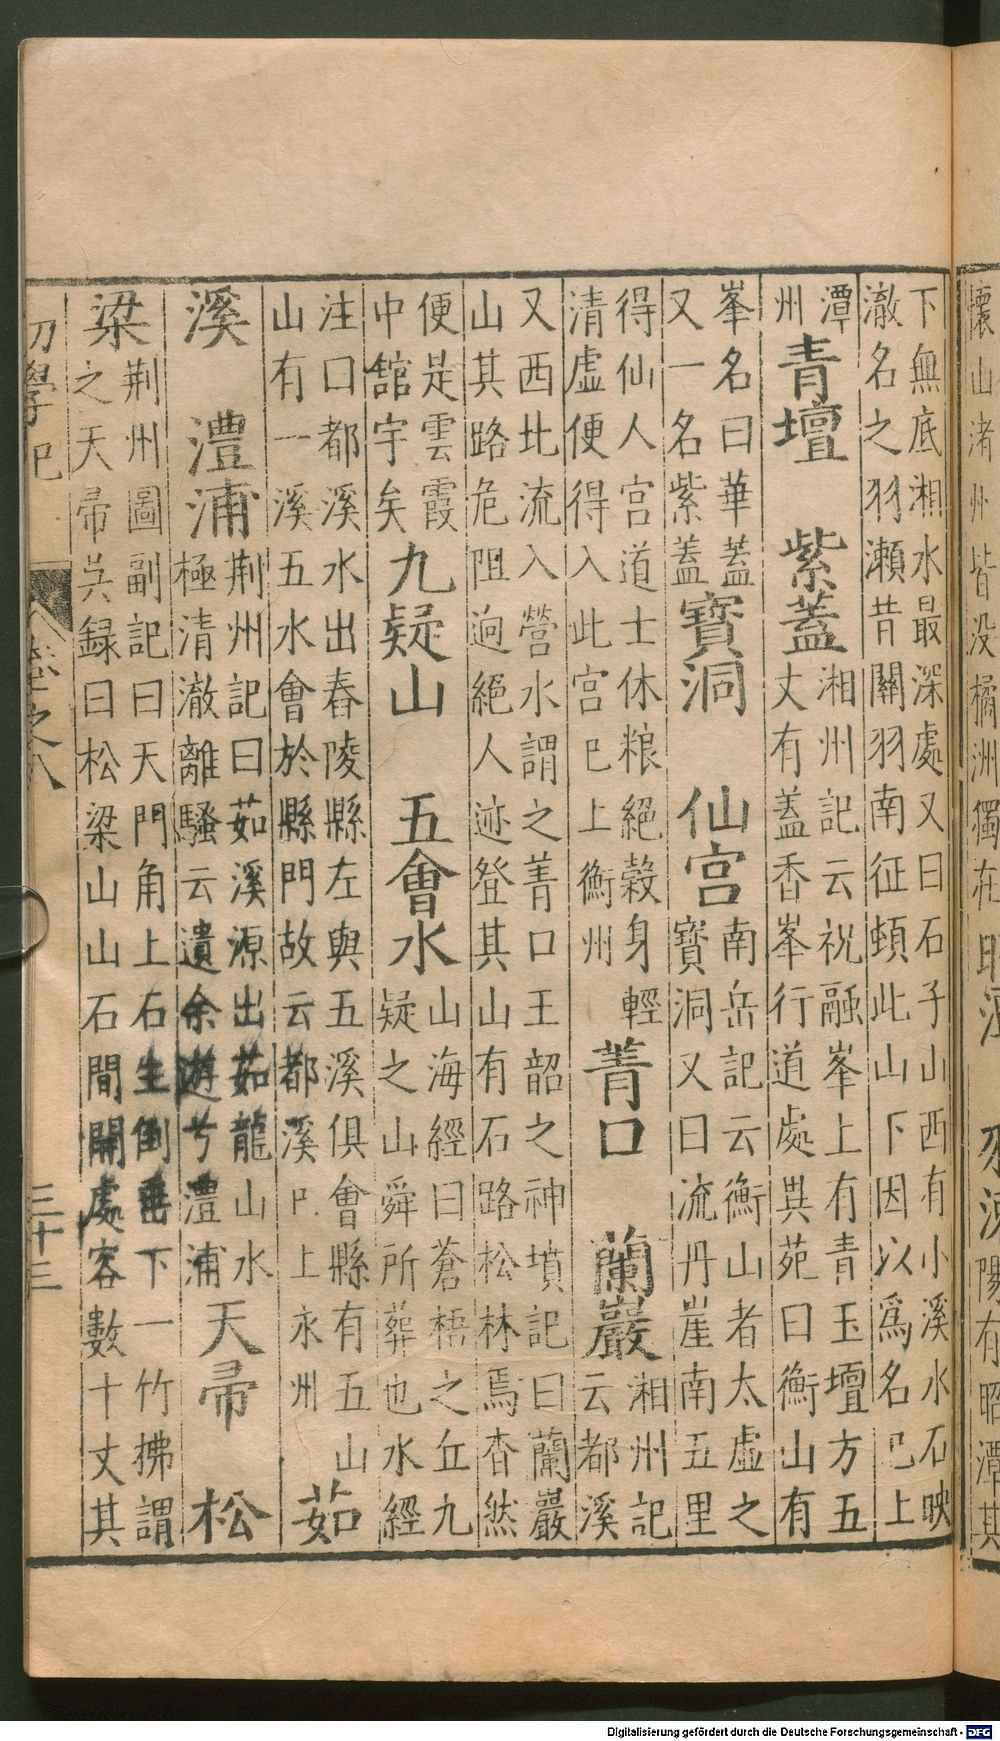 懷山渚州皆没橘洲獨在
陽有昭潭其
下無底湘水最深處又曰石子山西有小溪水石映
澈名之羽瀨昔關羽南征頓此山下因以爲名已上
潭
州
青壇　紫蓋
湘州記云祝融峯上有青玉壇方五
丈有蓋香峯行道處異苑曰衡山有
峯名曰華蓋
又一名紫蓋
寳洞　仙宫
南岳記云衡山者太虛之
寳洞又曰流丹崖南五里
得仙人宫道士休粮絕穀身輕
清虛便得入此宫已上衡州
菁口　蘭巖
湘州記
云都溪
又西北流入營水謂之菁口王韶之神墳記曰蘭巖
山其路危阻迥絕人迹登其山有石路松林焉杳然
便是雲霞
中舘宇矣
九疑山　五會水
山海經曰蒼梧之丘九
疑之山舜所葬也水經
注口都溪水出春陵縣左與五溪俱會縣有五山
山有一溪五水會於縣門故云都溪已上永州
茹
溪　澧浦
荆州記曰茹溪源出茹龍山水
極清澈離騷云遺余遊兮澧浦
天帚　松
梁
荆州圖副記曰天門角上石生倒垂下一竹拂謂
之天帚吳録曰松梁山山石間開處容數十丈其
初學記
卷之八
三十三
Digitalisierung gefördert durch die Deutsche Forschungsgemeinschaft - DFG